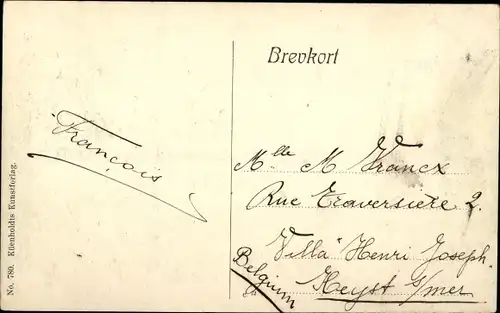 Brevkort
François
Mlle M Vrancx
Rue Traversiere 2.
Villa Henri Joseph.
Heyst s/mer
Belgium
No. 780. Küenholdts Kunstforlag.